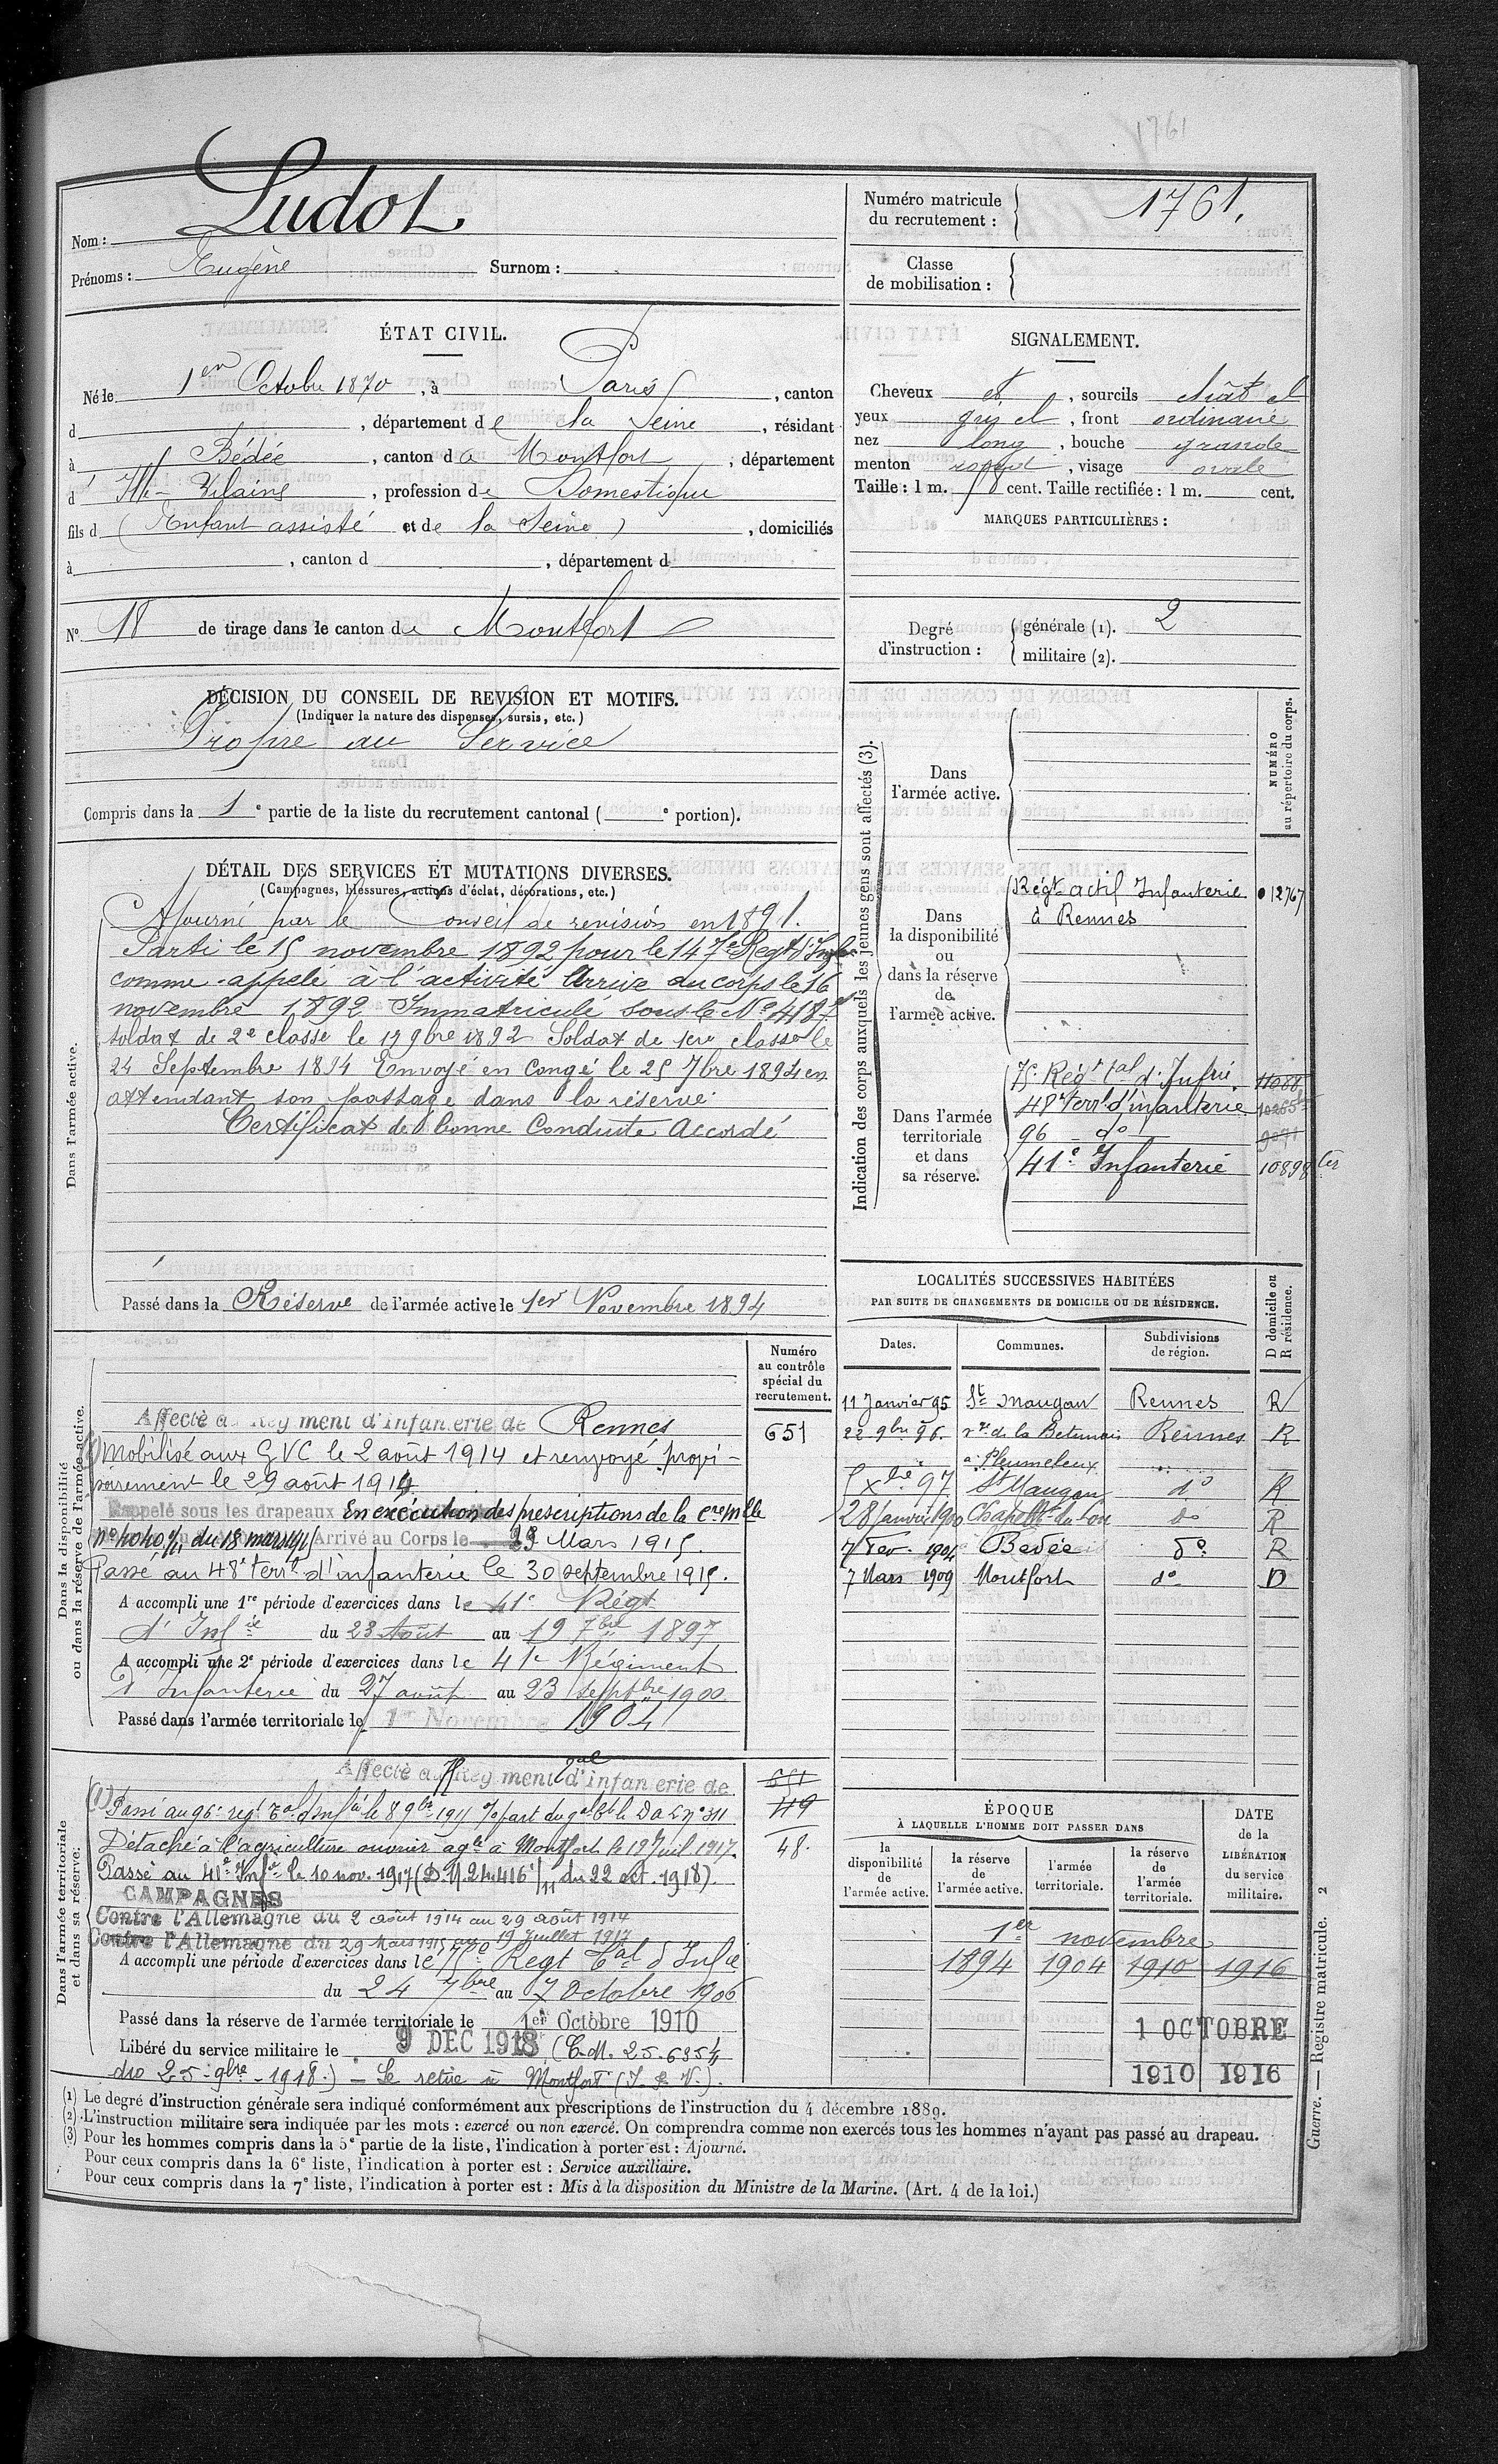 1761
Nom : Ludot
Prénoms : Eugène Surnom :
Numéro matricule du recrutement : 1761.
Classe de mobilisation :
ÉTAT CIVIL.
Né le 1er Octobre 1870, à Paris, canton
d , département de la Seine, résidant
à Bédée, canton de Montfort, département
d'Ille-Vilaine, profession de Domestique
fils d (Enfant assisté et de la Seine), domiciliés
à , canton d , département d
SIGNALEMENT.
Cheveux et, sourcils chât cl
yeux gris cl, front ordinaire
nez long, bouche grande
menton rond, visage ovale
Taille : 1 m. 58 cent. Taille rectifiée : 1 m. cent.
MARQUES PARTICULIÈRES :
N° 18 de tirage dans le canton de Montfort
Degré d'instruction : générale (1). 2
militaire (2).
DÉCISION DU CONSEIL DE REVISION ET MOTIFS.
(Indiquer la nature des dispenses, sursis, etc.)
Propre au Service
Compris dans la 1e partie de la liste du recrutement cantonal ( e portion).
DÉTAIL DES SERVICES ET MUTATIONS DIVERSES.
(Campagnes, blessures, actions d'éclat, décorations, etc.)
Dans l'armée active.
Ajourné par le Conseil de revision en 1891.
Parti le 15 novembre 1892 pour le 147e Regt d'Infie
comme appelé à l'activité Arrivé au corps le 16
novembre 1892 Immatriculé sous le No 4187
soldat de 2e classe le 17 9bre 1892 Soldat de 1ere classe le
24 Septembre 1894 Envoyé en Congé le 25 7bre 1894 en
attendant son passage dans la réserve
Certificat de bonne Conduite Accordé
Passé dans la Réserve de l'armée active le 1er Novembre 1894
Indication des corps auxquels les jeunes gens sont affectés (3).
NUMÉRO au répertoire du corps.
Dans l'armée active.
Dans la disponibilité ou dans la réserve de l'armée active.
Régt actif Infanterie 12767
à Rennes
Dans l'armée territoriale et dans sa réserve.
75 Régt Tal d'Infrie. 11088
48e Terral d'infanterie 10265
96 - do - 9071
41e Infanterie 10898 ter
LOCALITÉS SUCCESSIVES HABITÉES
PAR SUITE DE CHANGEMENTS DE DOMICILE OU DE RÉSIDENCE.
Dates. Communes. Subdivisions de région. D domicile ou R résidence.
11 Janvier 95 St Maugan Rennes R
22 9bre 96. de la Rennes R
a Pleumeleuc
5 Xbre 97 St Maugan do R
28 Janvier 1900 Chapelle du Lou do R
7 Fev. 1904 Bedée do R
7 Mars 1909 Montfort do D
Dans la disponibilité ou dans la réserve de l'armée active.
Numéro au contrôle spécial du recrutement.
Affecté au Régiment d'infanterie de Rennes 651
Mobilisé aux GVC le 2 août 1914 et renvoyé provi-
soirement le 29 août 1914.
Rappelé sous les drapeaux En exécution des prescriptions de la Cre Mlle
no du 18 mars 1915 Arrivé au Corps le 29 Mars 1915.
Passé au 48e Terral d'infanterie le 30 septembre 1915.
A accompli une 1re période d'exercices dans le 41e Régt
d'Infie du 23 Août au 19 7bre 1897
A accompli une 2e période d'exercices dans le 41e Régiment
d'Infanterie du 27 août au 23 septbre 1900
Passé dans l'armée territoriale le 1er Novembre 1904
Dans l'armée territoriale et dans sa réserve.
Affecté au 75 Régiment Tal d'infanterie de 651
(1) Passé au 96e regt Tal d'Infie le 8 9bre 1915 49
Détaché à l'agriculture ouvrier agle à Montfort le 19 Juil 1917. 48.
Passé au 41e Infie le 10 nov. 1917 (D. M. 24.416 1/11 du 22 oct. 1918).
CAMPAGNES
Contre l'Allemagne du 2 août 1914 au 29 août 1914
Contre l'Allemagne du 29 Mars 1915 au 19 Juillet 1917
A accompli une période d'exercices dans le 75e Regt Tal d'Infie
du 24 7bre au 7 Octobre 1906
Passé dans la réserve de l'armée territoriale le 1er Octobre 1910
Libéré du service militaire le 9 DEC 1918 (C.M. 25.6354
du 25-9bre-1918.) - Se retire à Montfort (I. & V.).
ÉPOQUE À LAQUELLE L'HOMME DOIT PASSER DANS
DATE de la LIBÉRATION du service militaire.
la disponibilité de l'armée active. la réserve de l'armée active. l'armée territoriale. la réserve de l'armée territoriale.
1er novembre
1894 1904 1910 1916
1 OCTOBRE
1910 1916
(1) Le degré d'instruction générale sera indiqué conformément aux prescriptions de l'instruction du 4 décembre 1889.
(2) L'instruction militaire sera indiquée par les mots : exercé ou non exercé. On comprendra comme non exercés tous les hommes n'ayant pas passé au drapeau.
(3) Pour les hommes compris dans la 5e partie de la liste, l'indication à porter est : Ajourné.
Pour ceux compris dans la 6e liste, l'indication à porter est : Service auxiliaire.
Pour ceux compris dans la 7e liste, l'indication à porter est : Mis à la disposition du Ministre de la Marine. (Art. 4 de la loi.)
Guerre. — Registre matricule. 2